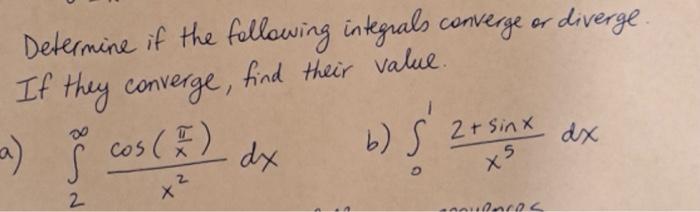 Determine if the following integrals converge or diverge.
If they converge, find their value.
a) ∫₂^∞ cos(π/x)/x² dx b) ∫₀¹ (2+sinx)/x⁵ dx